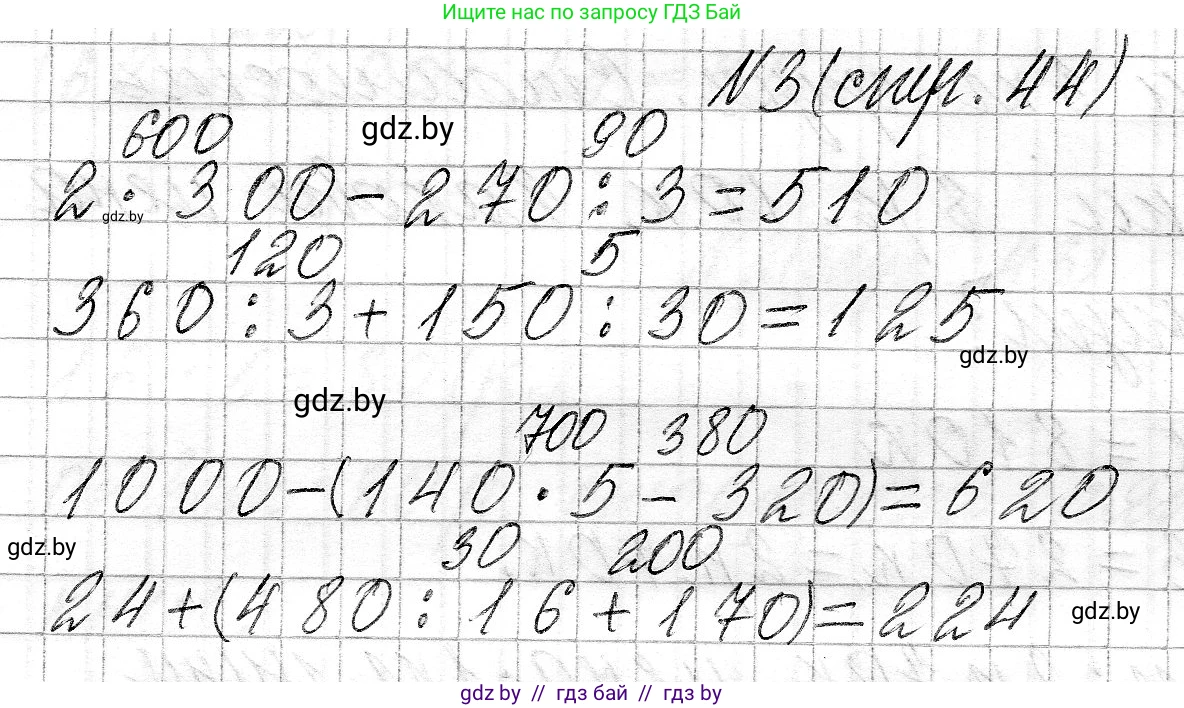 Ищите нас по запросу ГДЗ Бай
№3 (стр. 44)
600 gdz.by 90
2 · 300 - 270 : 3 = 510
gdz.by
120 5
360 : 3 + 150 : 30 = 125
gdz.by
gdz.by
700 380
1000 - (140 · 5 - 320) = 620
gdz.by 30 200
24 + (480 : 16 + 170) = 224
gdz.by
gdz.by // гдз бай // гдз by